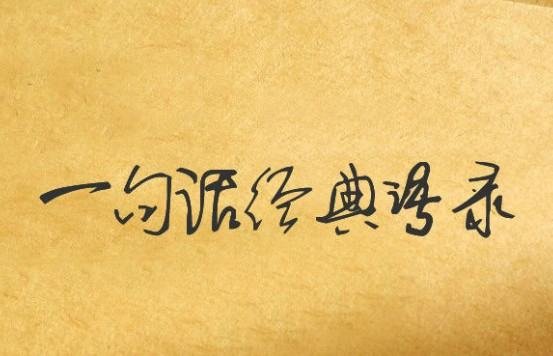 一句话经典语录